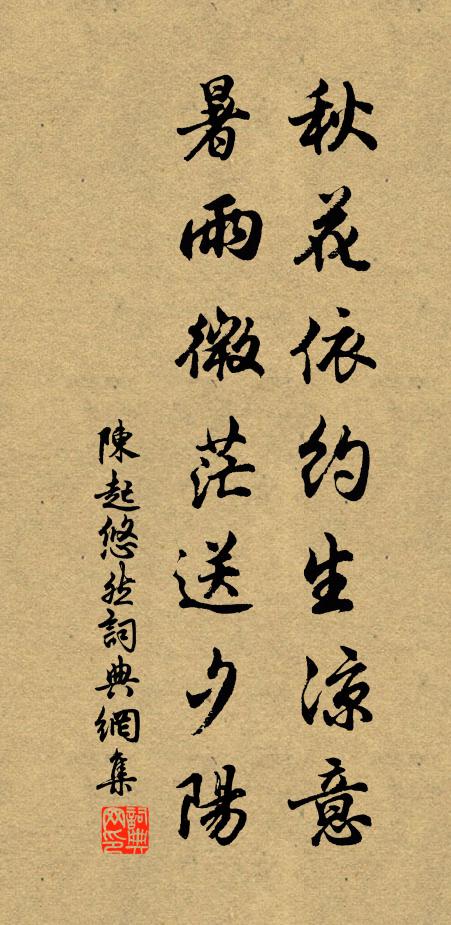 秋花依約生涼意
暑雨微茫送夕陽
陳起悠然詞典網集
詞典网印